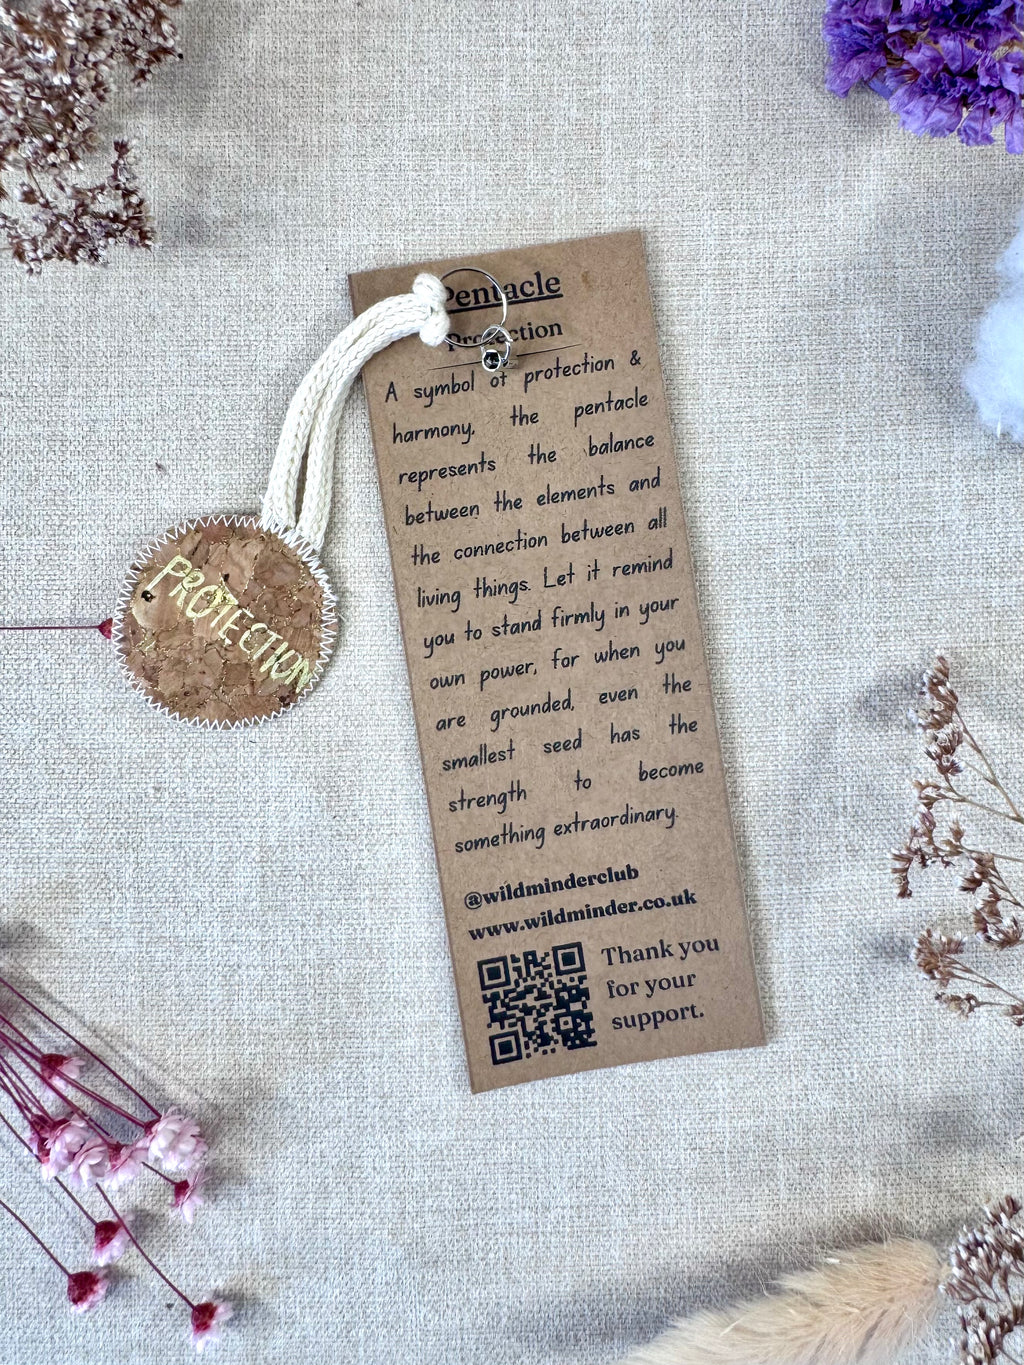 Pentacle
Protection
A symbol of protection &
harmony, the pentacle
represents the balance
between the elements and
the connection between all
living things. Let it remind
you to stand firmly in your
own power, for when you
are grounded, even the
smallest seed has the
strength to become
something extraordinary.
@wildminderclub
www.wildminder.co.uk
Thank you
for your
support.
PROTECTION